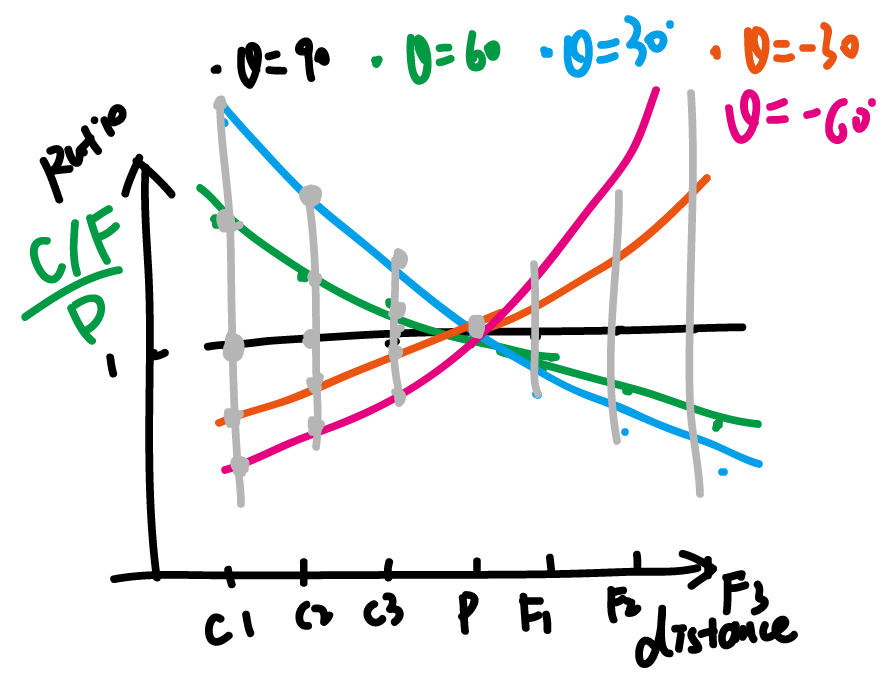 · θ=90 · θ=60 · θ=30° · θ=-30
θ=-60°
Ratio
C/F
P
1
C1 C2 C3 P F1 F2 F3
distance